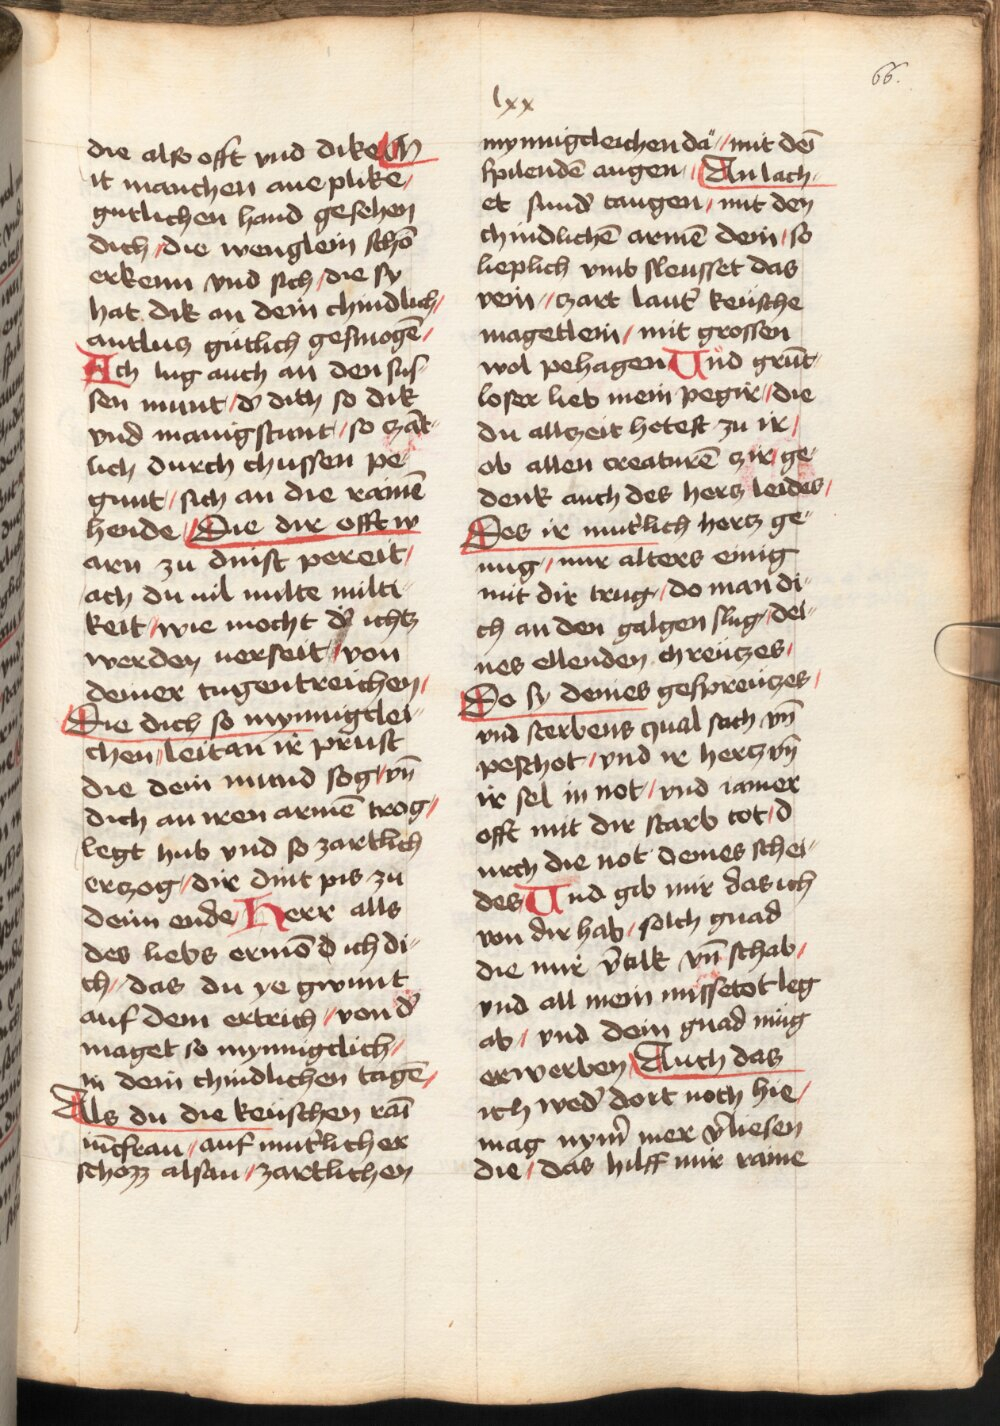 66.
lxx
die also offt vnd dike M
it manchen aneplike /
gutlichen hand gesehen
dich / die wenglein schō
erkenn vnd sich / die sy
hat dik an dein chindlich /
antlucz gütlich gesmogē /
Ach lug auch an den sus-
sen munt / d̕ dich so dik
vnd manigstunt / so zart-
lich durch chussen pe-
gunt // sich an die rainē
hende // Die dir offt w
arn zu dinst pereit /
ach du vil milte milti-
keit / wie mocht d̕ ichtz
werden verseit / von
deiner tugentreichen /
Die dich so mynnigclei-
chen / leit an ir prust
die dein mund sog / vn̄
dich an iren armē trog /
legt hub vnd so zartlich
erczog / dir dint pis zu
deim ende / Herr alls
des liebs ermō d ich di-
ch / das du ye gwunt
auf dem ertrich // von d̕
maget so mynnigclich /
in dein chindlichen tagē /
Als du die keuschen rai
iūcfrau / auf mut̕licher
schozz alsau // zartlichen
mynnigcleichen da // mit dē
spilendē augen // An lach-
et sund̕ taugen / mit den
chindlichē armē dein / so
lieplich vmb sleusset das
rein // zart laut̕ keusche
magetlein / mit grossen
wol pehagen Und grūt-
loser lieb mein pegir / die
du allzeit hetest zu ir /
ob allen creaturē zir / ge-
denk auch des hercz leides /
Des ir mut̕lich hertz ge-
nug / nur alters einig
mit dir trug / do man di-
ch an den galgen slug / dei-
nes ellenden chreuczes /
Do sy deines gespreuczes /
vnd sterbens qual sach vn̄
peschot / vnd ir hertz vn̄
ir sel in not / vnd iamer
offt mit dir starb tot / d
urch die not deines schei-
des Und gib mir das ich
von dir hab / solch gnad
die mir v̕tilk vn̄ schab /
vnd all mein missetot leg
ab / vnd dein gnad müg
erwerben / Auch das
ich wed̕ dort noch hie /
mag nym̄ mer v̕liesen
die / das hilff mir raine